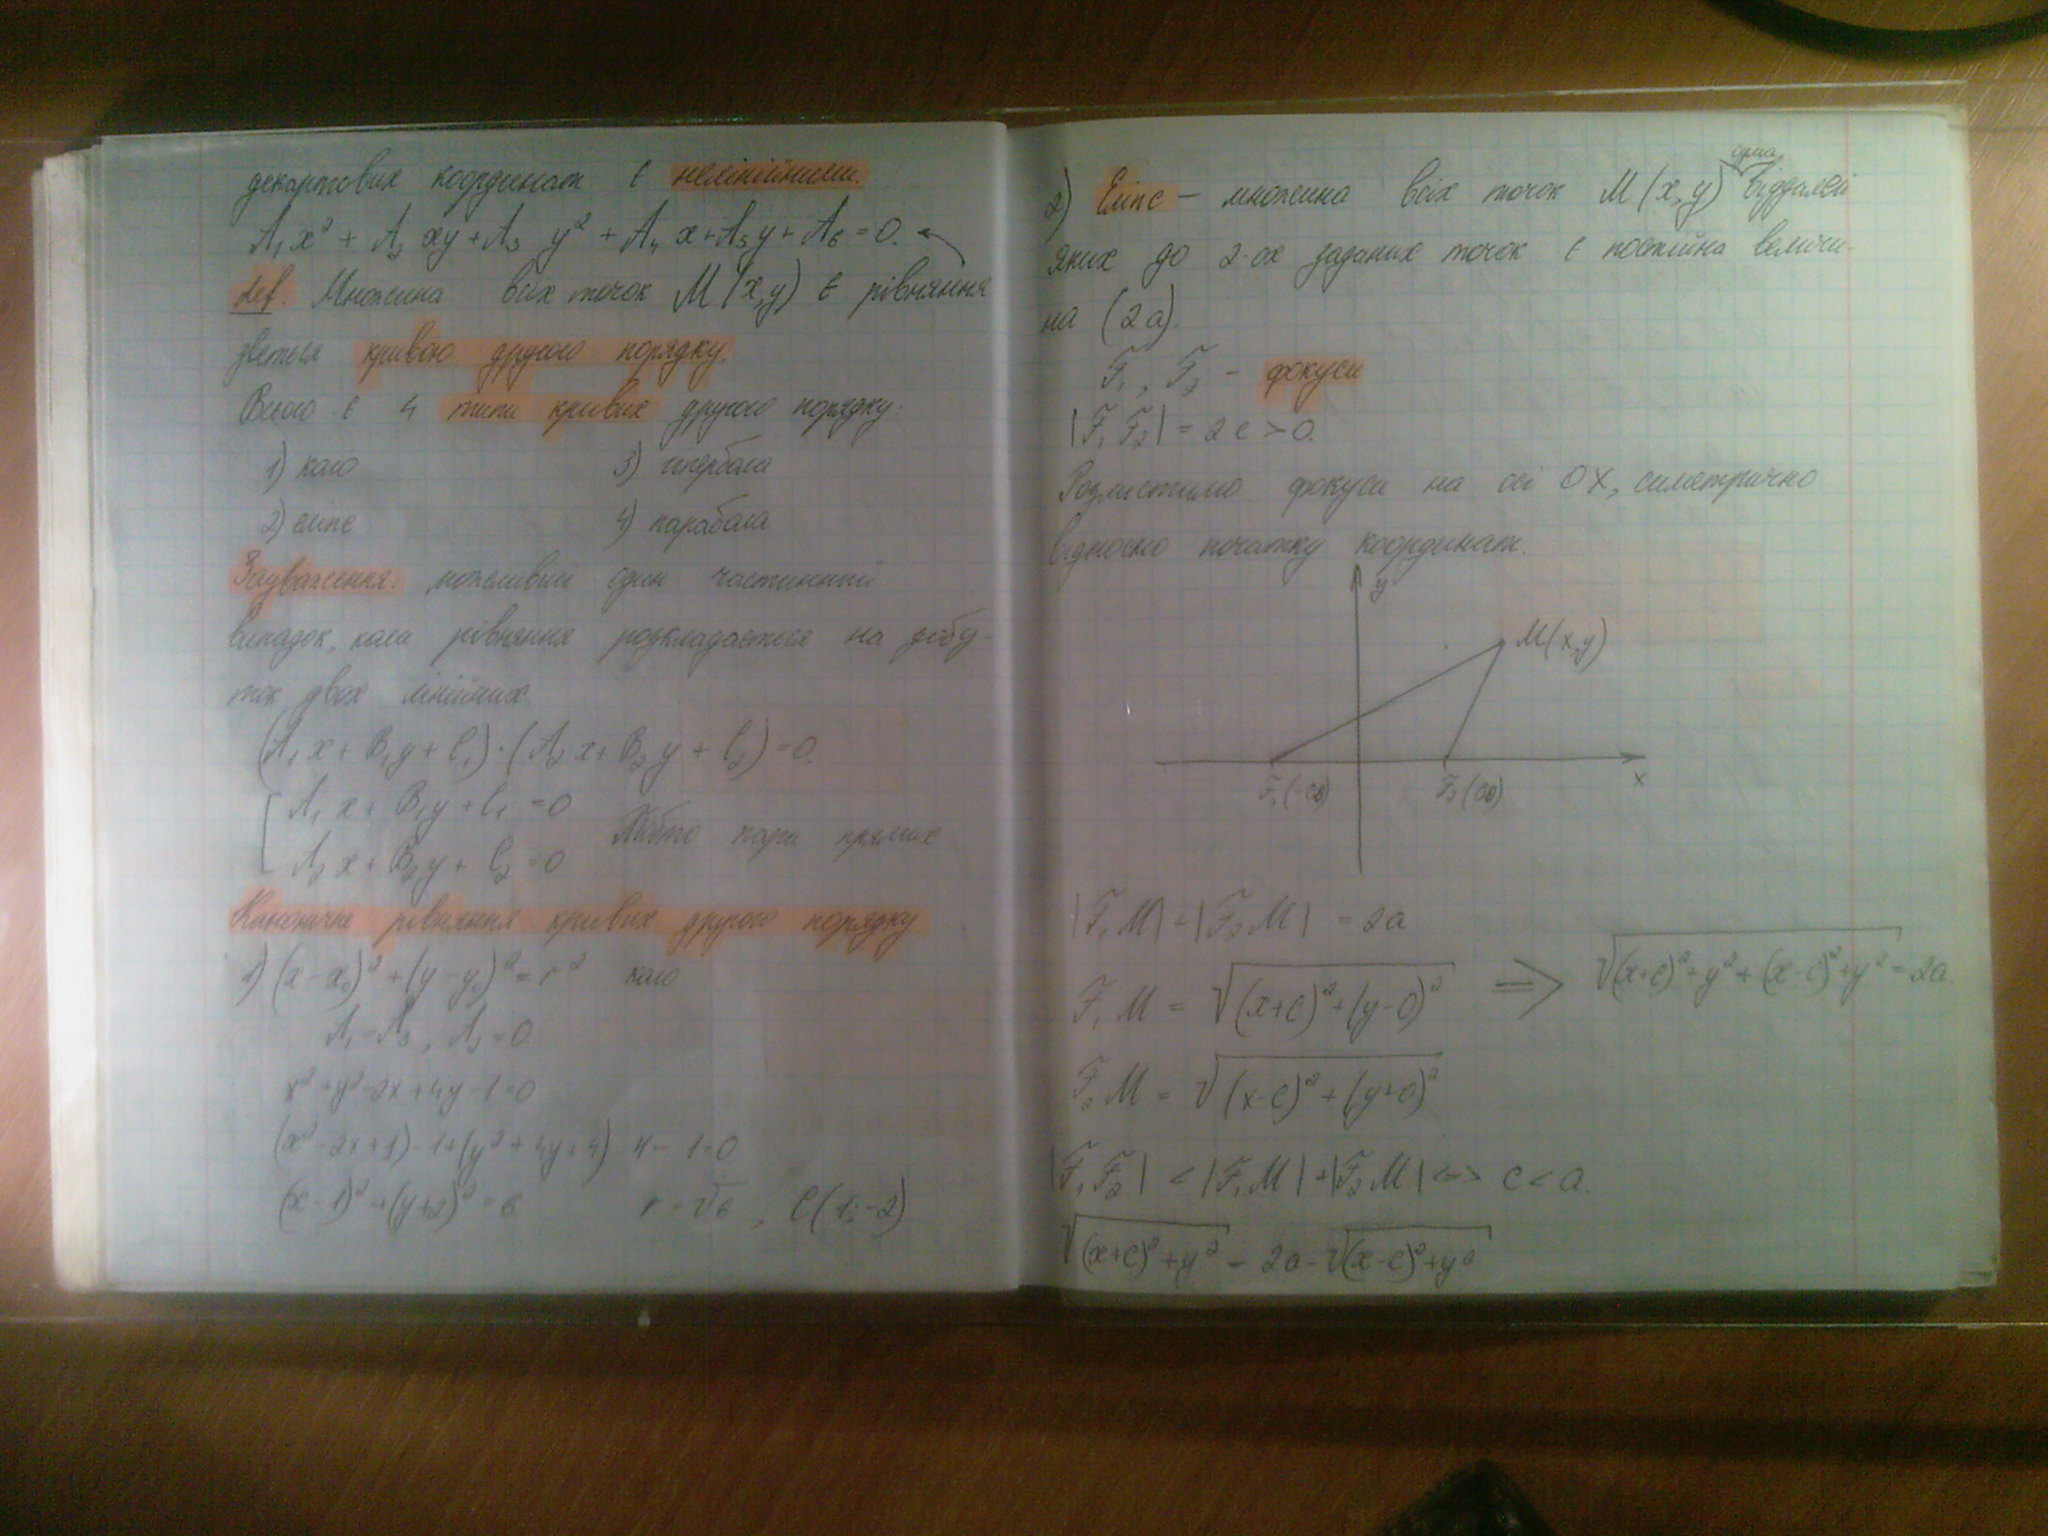 декартових координат є нелінійними.
A₁x² + A₂xy + A₃y² + A₄x + A₅y + A₆ = 0.
def. Множина всіх точок M(x,y) є рівняння
зветься кривою другого порядку.
Всього є 4 типи кривих другого порядку:
1) коло 3) гіпербола
2) еліпс 4) парабола
Зауваження: можливий один частинний
випадок, коли рівняння розкладається на добу-
ток двох лінійних.
(A₁x + B₁y + C₁)·(A₂x + B₂y + C₂) = 0.
[ A₁x + B₁y + C₁ = 0
A₂x + B₂y + C₂ = 0 Тобто пара прямих
Канонічне рівняння кривих другого порядку
1) (x-x₀)² + (y-y₀)² = r² коло
A₁ = A₃, A₂ = 0
x² + y² - 2x + 4y - 1 = 0
(x² - 2x + 1) - 1 + (y² + 4y + 4) - 4 - 1 = 0
(x-1)² + (y+2)² = 6 r = √6, C(1;-2)
2) Еліпс – множина всіх точок M(x,y) сума віддалей
яких до 2-ох заданих точок є постійна величи-
на (2a).
F₁, F₂ – фокуси
|F₁F₂| = 2c > 0.
Розмістимо фокуси на осі OX, симетрично
відносно початку координат.
y
M(x,y)
F₁(-c0) F₂(c0) x
|F₁M| + |F₂M| = 2a
F₁M = √(x+c)² + (y-0)² ⇒ √(x+c)² + y² + (x-c)² + y² = 2a.
F₂M = √(x-c)² + (y+0)²
|F₁F₂| < |F₁M| + |F₂M| <=> c < a.
√(x+c)² + y² = 2a - √(x-c)² + y²